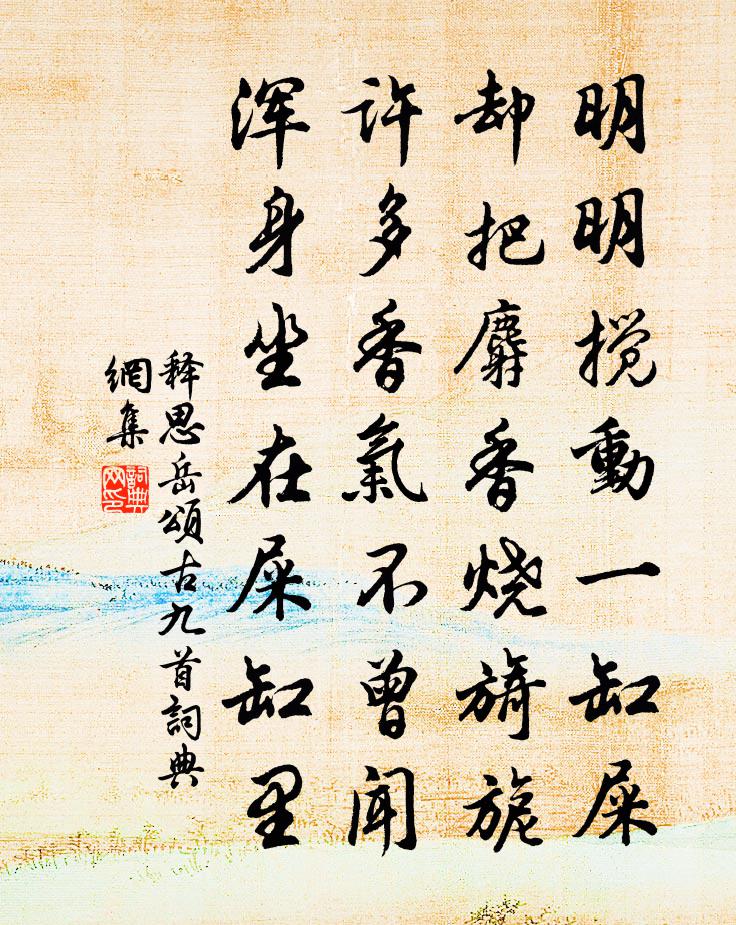 明明搅動一缸屎
却把麝香烧旖旎
许多香氣不曾闻
浑身坐在屎缸里
释思岳頌古九首詞典
網集
詞典
网印